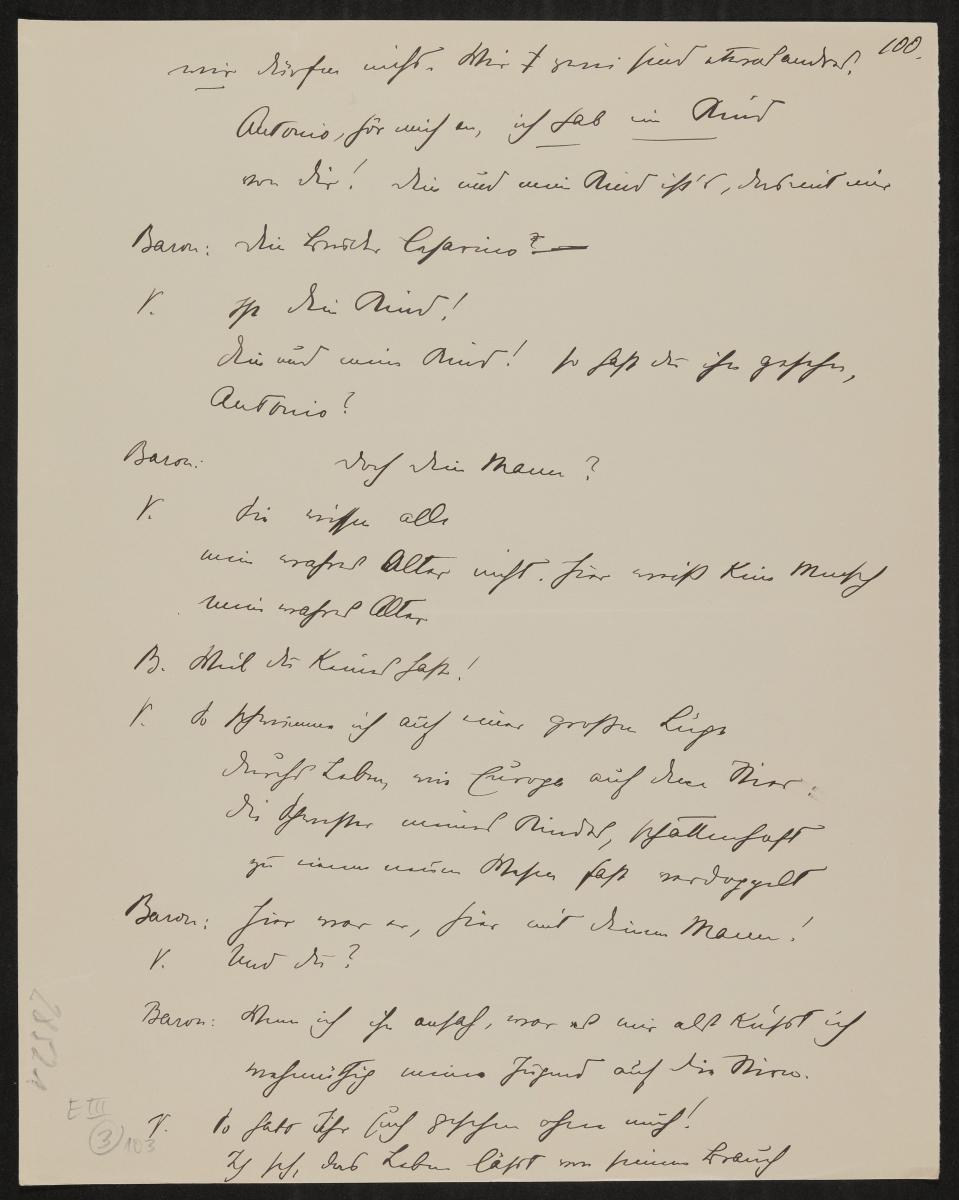 100.
wir dürfen nicht. Wir zwei sind etwas andres.
Antonio, hör mich an, ich hab ein Kind
von dir! dein und mein Kind ist's, das mit mir
Baron: Dein Bruder Cesarino? —
V. Ist dein Kind!
dein und mein Kind! So hast du ihn gesehn,
Antonio?
Baron: Doch dein Mann?
V. Sie wissen alle
mein wahres Alter nicht. Hier weiß kein Mensch
mein wahres Alter
B. Weil du Kind hast!
V. So schwimme ich auf einer großen Lüge
durchs Leben, wie Europa auf dem Stier:
die Schwester meines Kindes, schattenhaft
zu einem neuen Wesen fast verdoppelt
Baron: Hier war er, hier mit deinem Mann!
V. Und du?
Baron: Wenn ich ihn ansah, war es mir als küßt ich
wehmüthig meine Jugend auf die Stirn.
V. So habt Ihr Euch gesehen ohne mich!
Ich seh, das Leben läßt von seinem Brauch
E III
3
103